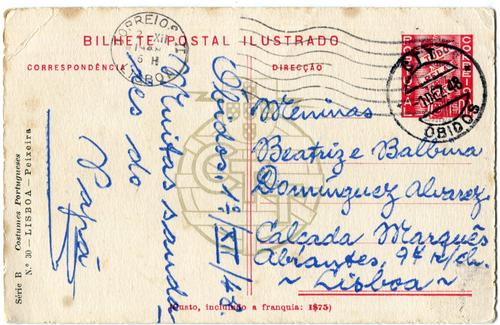 BILHETE POSTAL ILUSTRADO
CORRESPONDÊNCIA
DIRECÇÃO
CORREIOS
LISBOA
PORTUGAL
OBIDOS
Óbidos, 1º/XII/48.
Muitas sauda-
des do
Papá
Meninas
Beatriz e Balbina
Dominguez Alvarez.
Calçada Marquês
Abrantes, 97 r/ch.
~ Lisboa ~
(Custo, incluindo a franquia: 1$75)
Série B Costumes Portugueses
N.º 30 — LISBOA — Peixeira